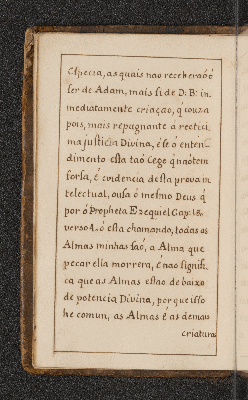 especia, as quais nao receberaõ ó
ser de Adam, mais si de D.s in-
mediatamente criaçaõ, q̃ couza
pois, mais repugnante a rectici-
ma justicia Divina, é se ó enten-
dimento esta taõ Cego q̃ naõ tem
forsa, é evidencia desta prova in
telectual, ousa ó mesmo Deus q̃
por ó Propheta Ezequiel Cap: 18.
verso 4. ó esta chamando, todas as
Almas minhas saõ, a Alma que
pecar ella morrera, é nao signifi-
ca que as Almas estao de baixo
de potencia Divina, porque isso
he comun, as Almas é as demais
criaturas